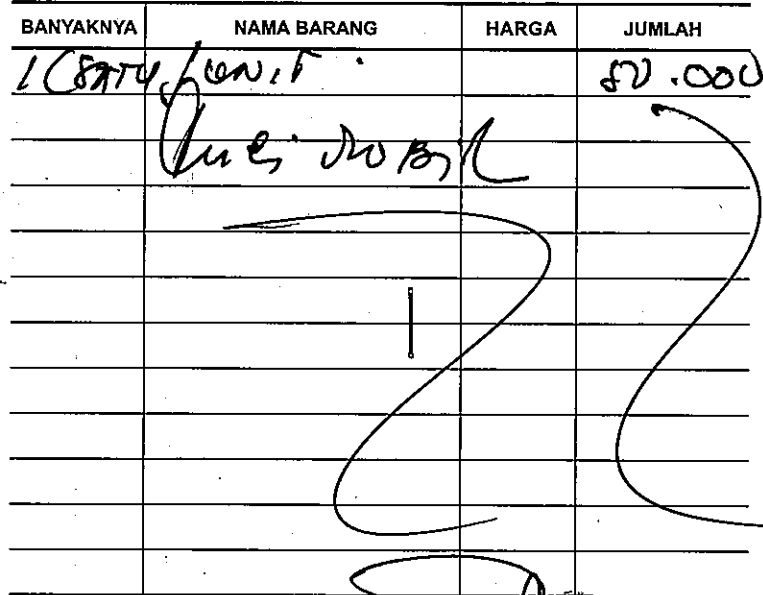 BANYAKNYA NAMA BARANG HARGA JUMLAH
1 (SATU) UNIT 80.000
Cuci MOBIL